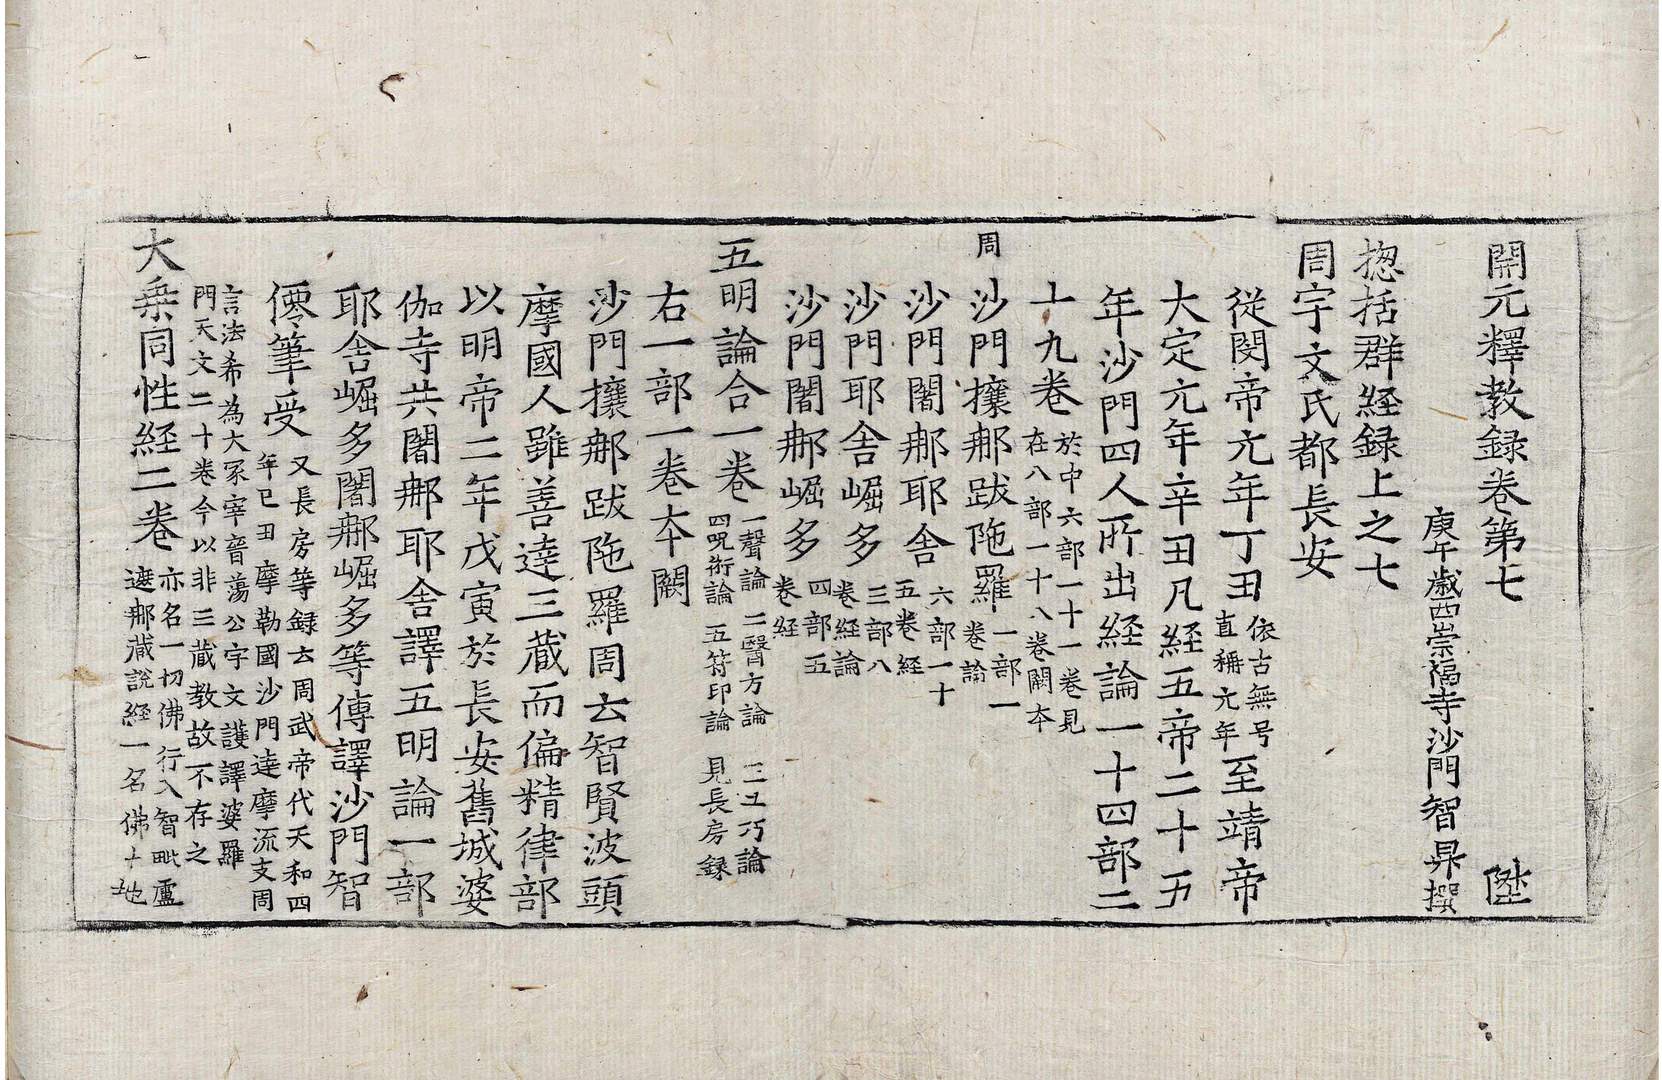 開元釋教録卷第七 陞
庚午歳西崇福寺沙門智昇撰
揔括群経録上之七
周宇文氏都長安
從閔帝元年丁丑依古無号直稱元年至靖帝
大定元年辛丑凡經五帝二十五
年沙門四人所出経論一十四部二
十九巻於中六部一十一巻見在八部一十八巻闕夲
周 沙門攘那跋陁羅一部一巻論
沙門闍那耶舎六部一十五巻経
沙門耶舎崛多三部八巻経論
沙門闍那崛多四部五巻経
五明論合一巻一聲論 二醫方論 三工巧論四呪術論 五符印論 見長房録
右一部一巻夲闕
沙門攘那跋陁羅周云智賢波頭
摩國人雖善達三藏而偏精律部
以明帝二年戊寅於長安舊城婆
伽寺共闍那耶舎譯五明論一部
耶舎崛多闍那崛多等傳譯沙門智
僊筆受又長房等録云周武帝代天和四年己丑摩勒國沙門達摩流支周
言法希為大冢宰晉蕩公宇文護譯婆羅門天文二十巻今以非三藏教故不存之
大乗同性経二巻亦名一切佛行入智毗盧遮那藏說経一名佛十地